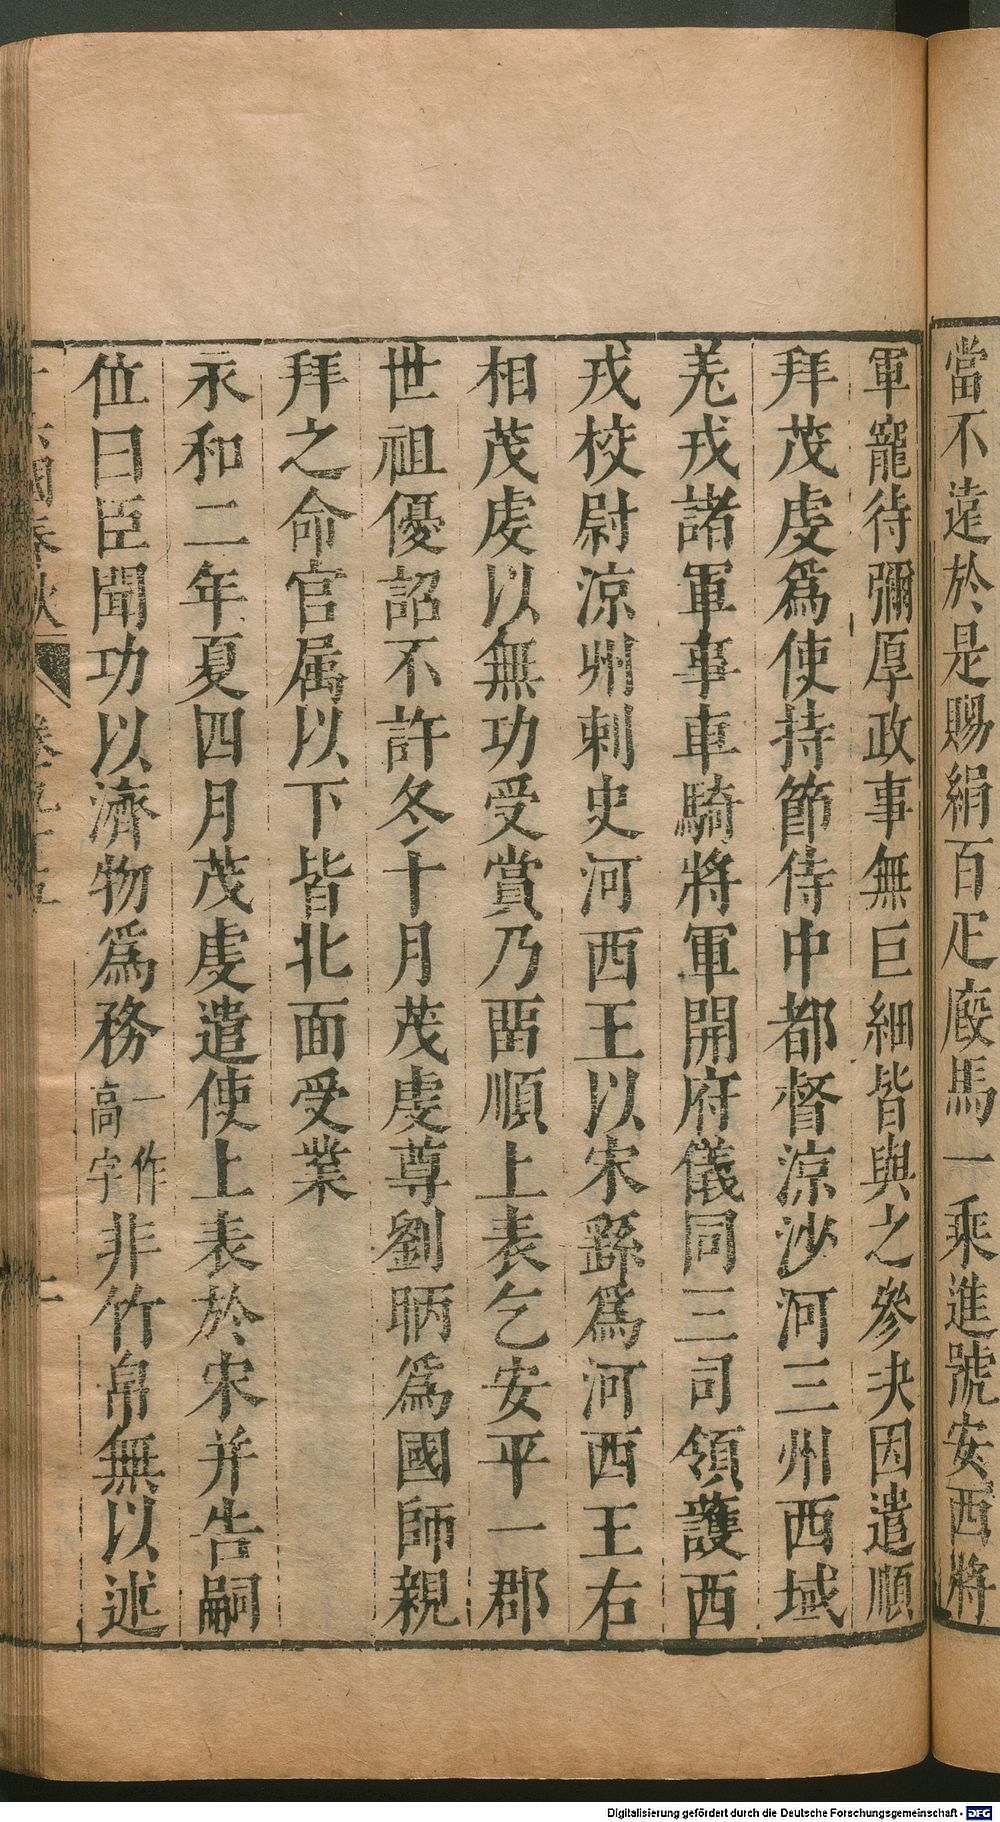 當不遠於是賜絹百疋廄馬一乘進號安西將
軍寵待彌厚政事無巨細皆與之參决因遣順
拜茂虔爲使持節侍中都督涼沙河三州西域
羗戎諸軍事車騎將軍開府儀同三司領護西
戎校尉涼州刺史河西王以宋繇爲河西王右
相茂虔以無功受賞乃畱順上表乞安平一郡
世祖優詔不許冬十月茂虔尊劉昞爲國師親
拜之命官属以下皆北面受業
永和二年夏四月茂虔遣使上表於宋并告嗣
位曰臣聞功以濟物爲務一作高字非竹帛無以述
國春秋
Digitalisierung gefördert durch die Deutsche Forschungsgemeinschaft - DFG